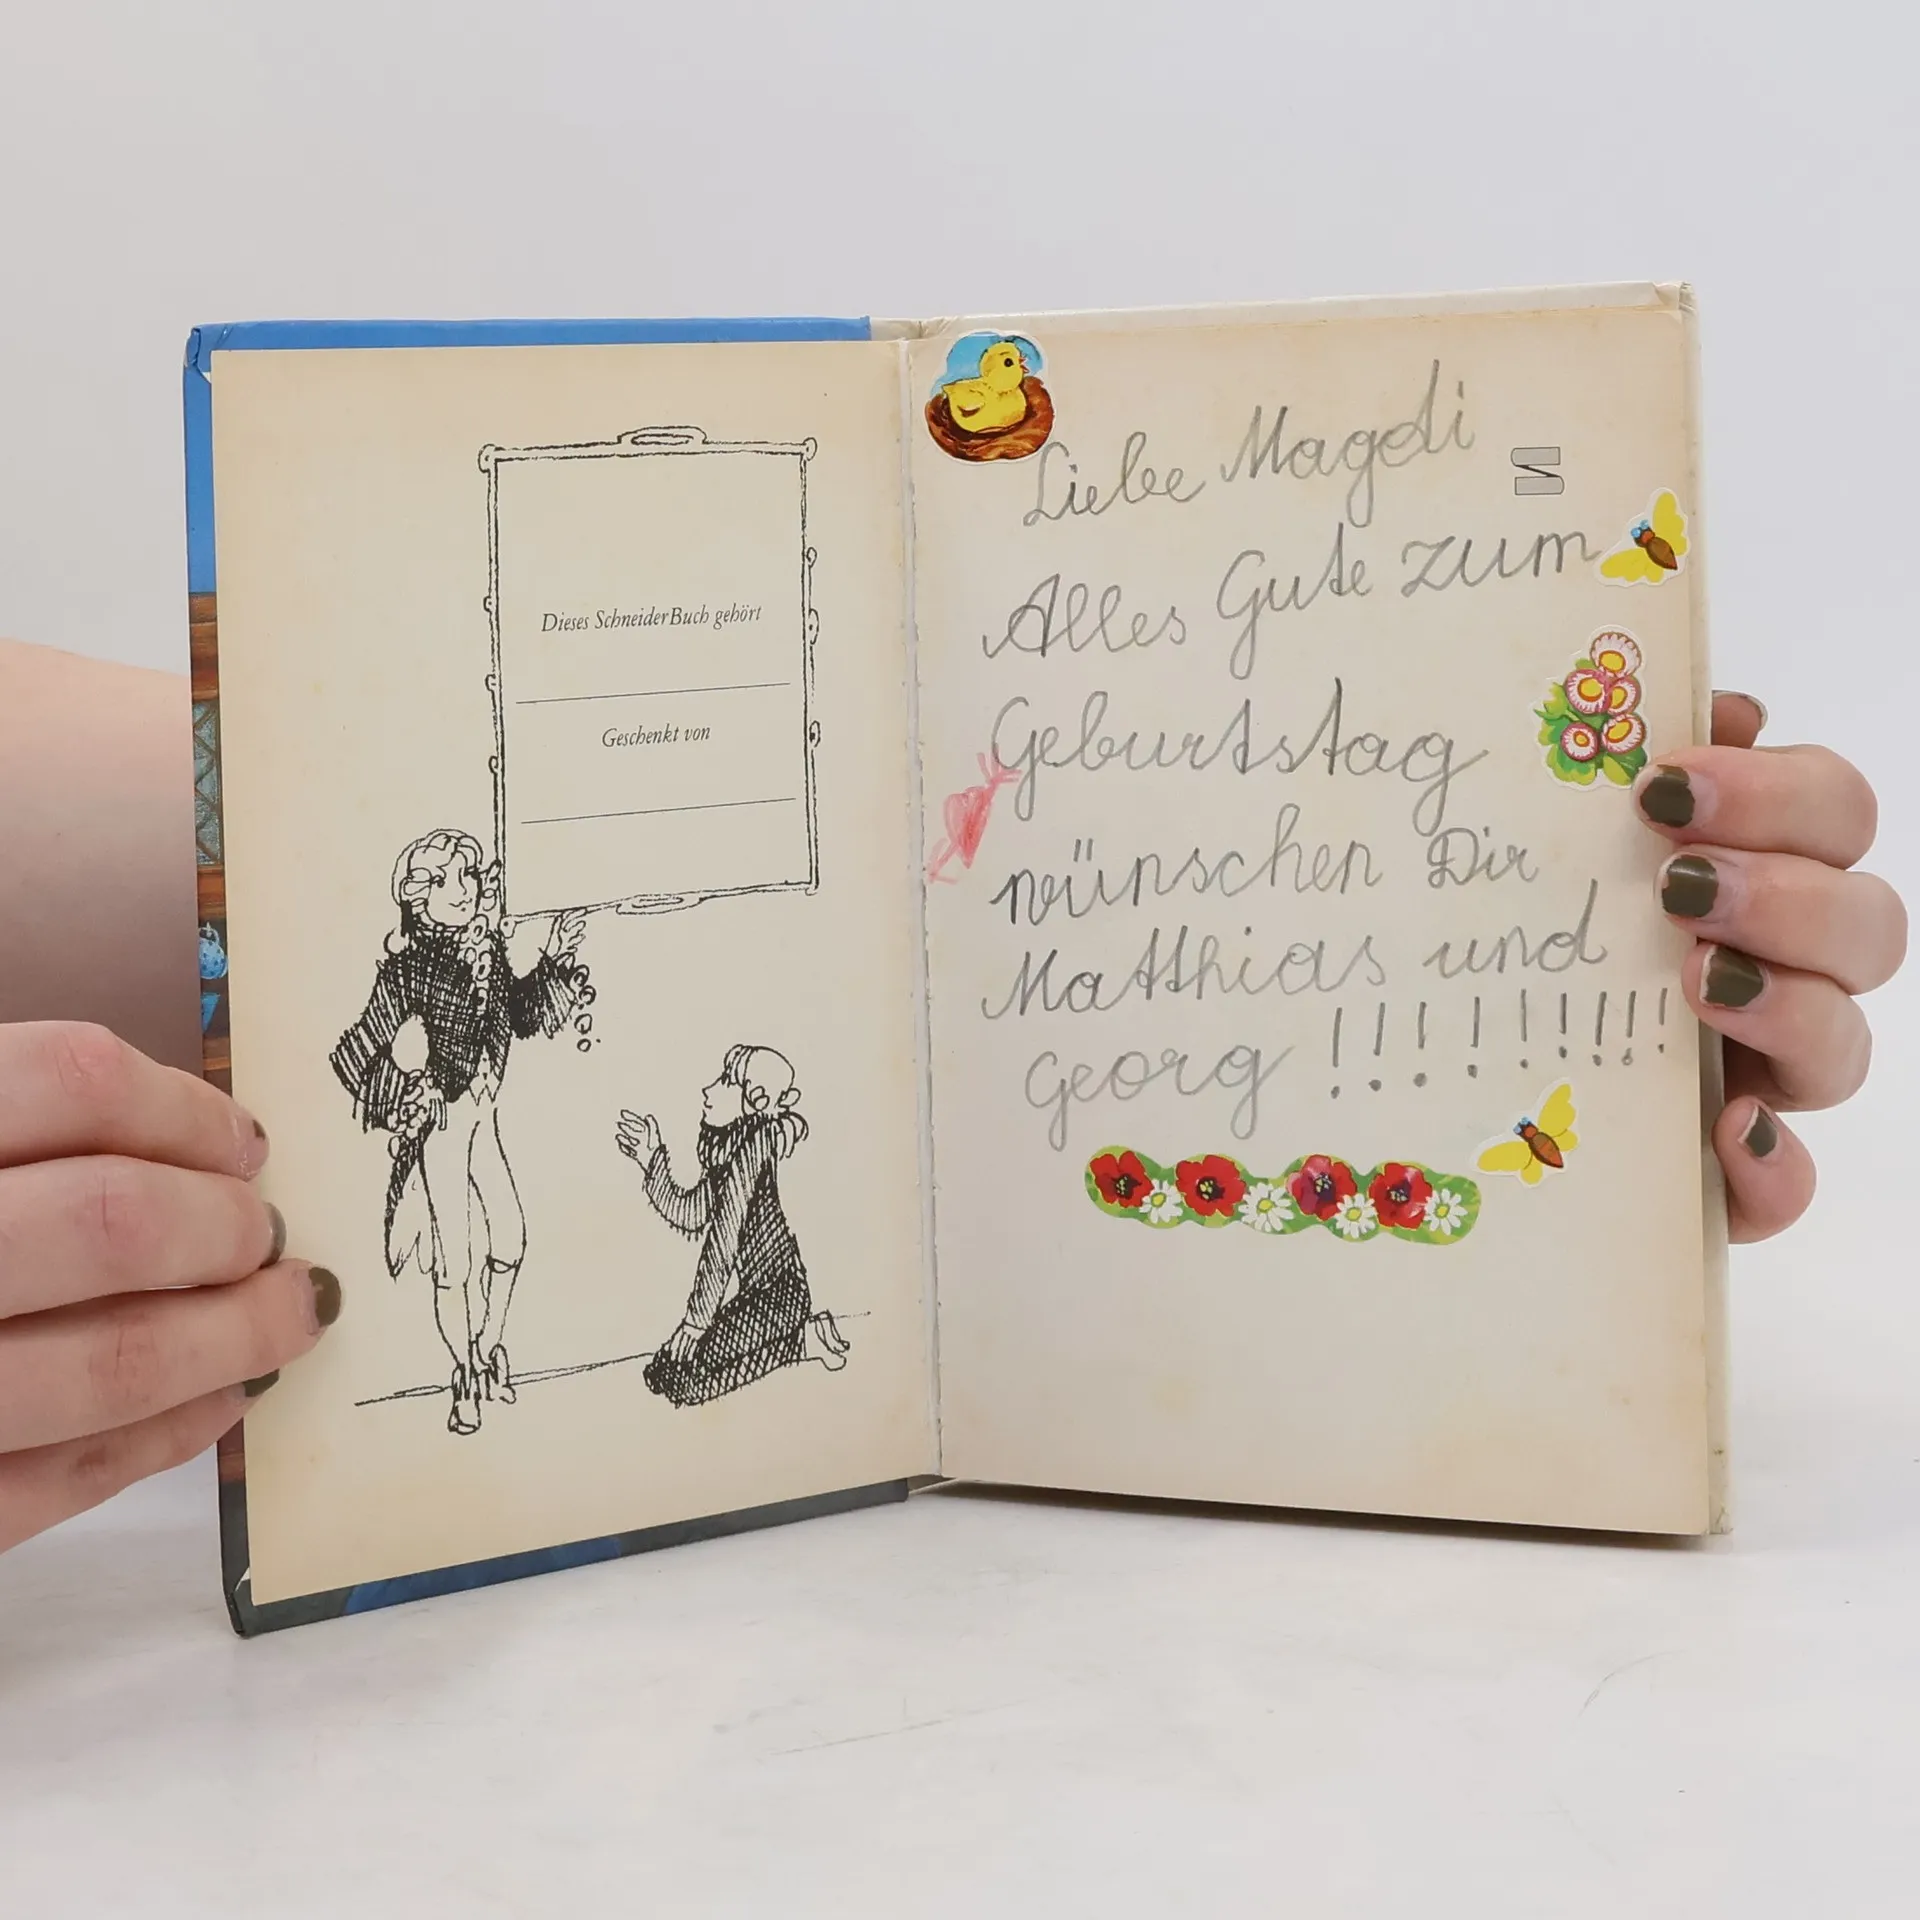 Dieses SchneiderBuch gehört
Geschenkt von
Liebe Magdi
Alles Gute zum
Geburtstag
wünschen Dir
Matthias und
Georg !!!!!!!!!